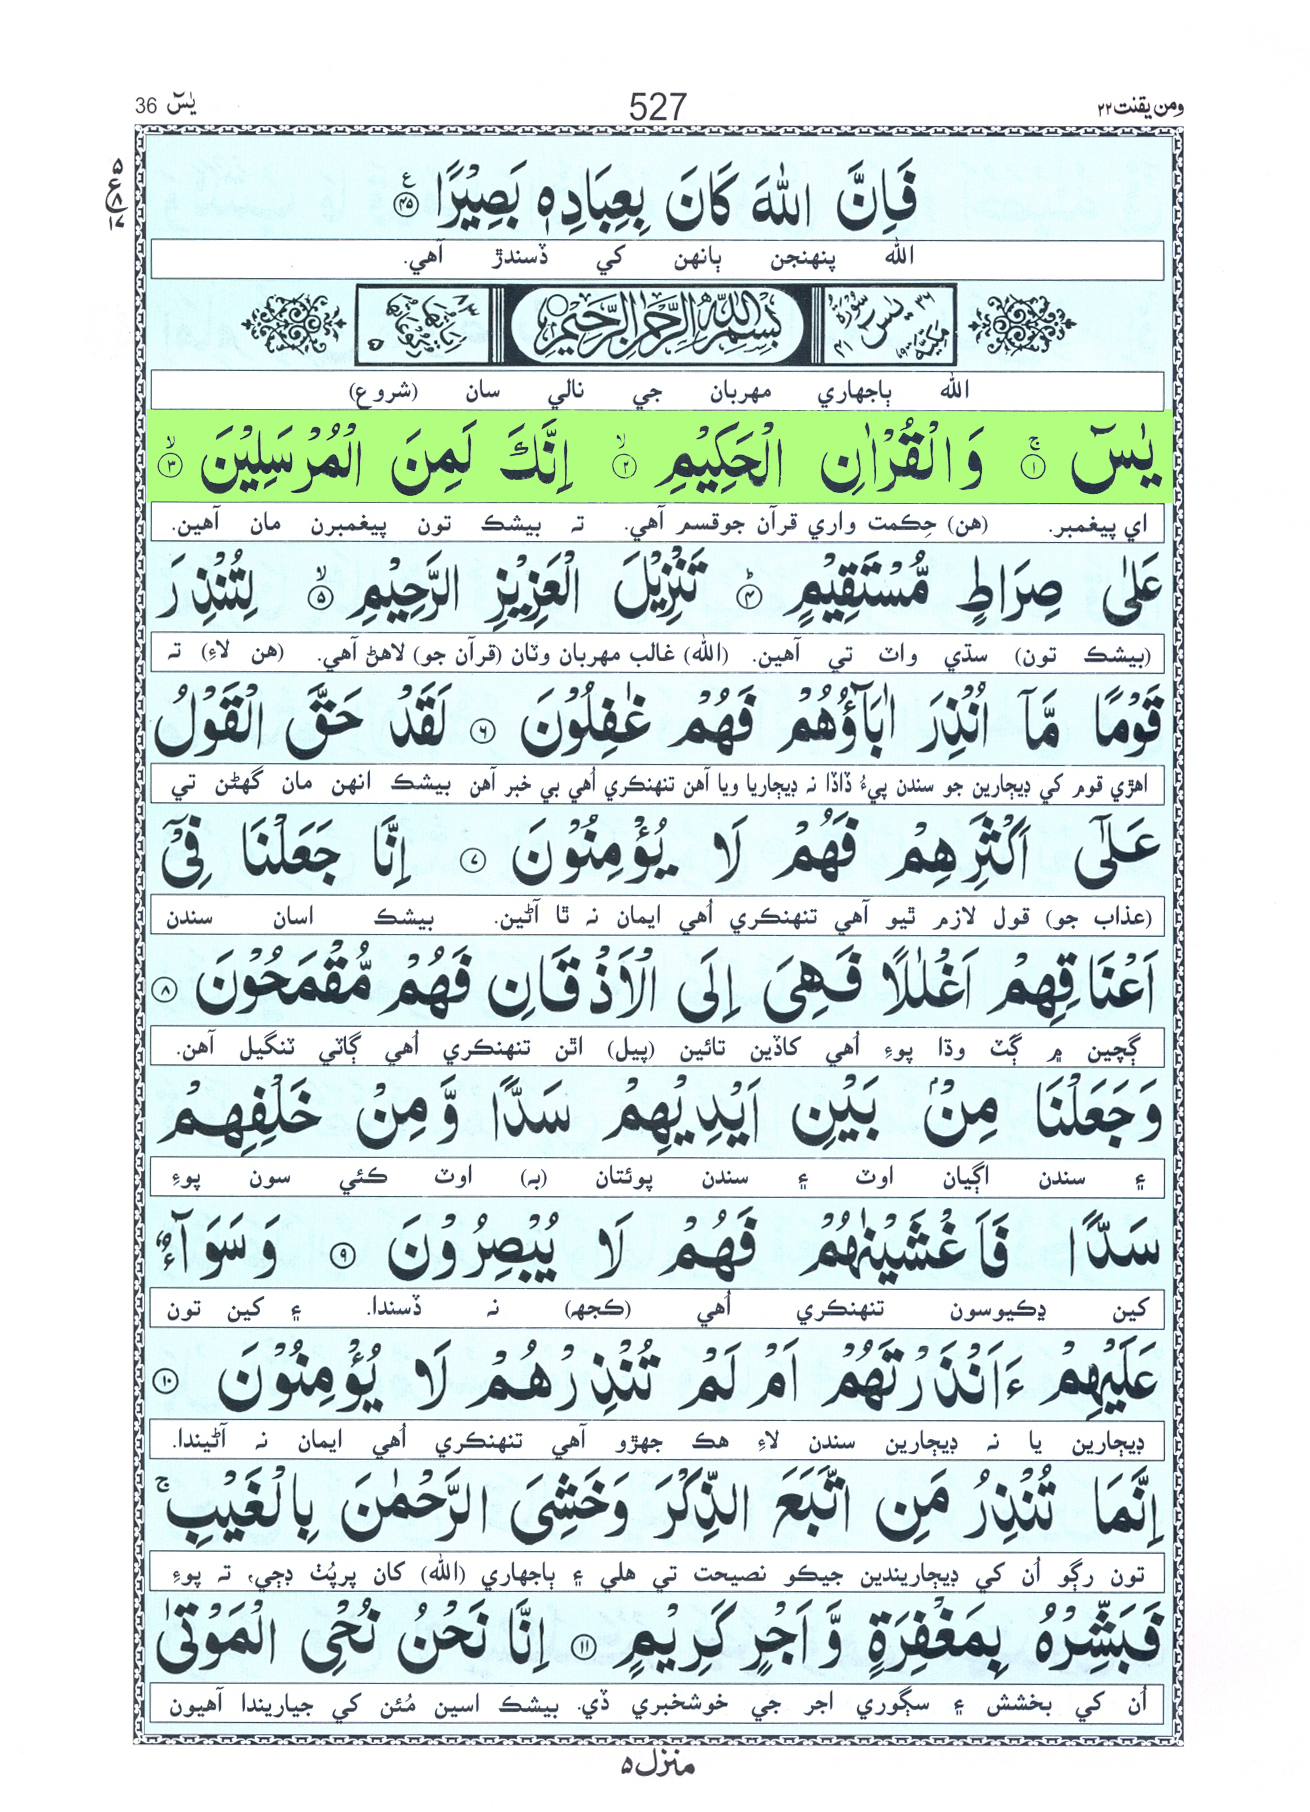 ومن یقنت ۲۲ 527 یٰسٓ 36
فَاِنَّ اللّٰهَ كَانَ بِعِبَادِهٖ بَصِیْرًا ﴿۴۵﴾ ع
۵ ع ۸ ۱۷
الله پنهنجن ٻانهن کي ڏسندڙ آهي.
۳۶ سُوْرَةُ یٰسٓ مَکِّیَّةٌ ۴۱ بِسْمِ اللّٰهِ الرَّحْمٰنِ الرَّحِیْمِ اٰیَاتُهَا ۸۳ رُکُوْعَاتُهَا ۵
الله ٻاجهاري مهربان جي نالي سان (شروع)
یٰسٓ ﴿۱﴾ۚ وَالْقُرْاٰنِ الْحَكِیْمِ ﴿۲﴾ۙ اِنَّكَ لَمِنَ الْمُرْسَلِیْنَ ﴿۳﴾ۙ
اي پيغمبر. (هن) حِڪمت واري قرآن جوقسم آهي. تہ بيشڪ تون پيغمبرن مان آهين.
عَلٰی صِرَاطٍ مُّسْتَقِیْمٍ ﴿۴﴾ؕ تَنْزِیْلَ الْعَزِیْزِ الرَّحِیْمِ ﴿۵﴾ۙ لِتُنْذِرَ
(بيشڪ تون) سڌي واٽ تي آهين. (الله) غالب مهربان وٽان (قرآن جو) لاهڻ آهي. (هن لاءِ) تہ
قَوْمًا مَّاۤ اُنْذِرَ اٰبَآؤُهُمْ فَهُمْ غٰفِلُوْنَ ﴿۶﴾ لَقَدْ حَقَّ الْقَوْلُ
اهڙي قوم کي ڊيڄارين جو سندن پيءُ ڏاڏا نہ ڊيڄاريا ويا آهن تنهنڪري اُهي بي خبر آهن بيشڪ انهن مان گهڻن تي
عَلٰۤی اَكْثَرِهِمْ فَهُمْ لَا یُؤْمِنُوْنَ ﴿۷﴾ اِنَّا جَعَلْنَا فِیْۤ
(عذاب جو) قول لازم ٿيو آهي تنهنڪري اُهي ايمان نہ ٿا آڻين. بيشڪ اسان سندن
اَعْنَاقِهِمْ اَغْلٰلًا فَهِیَ اِلَی الْاَذْقَانِ فَهُمْ مُّقْمَحُوْنَ ﴿۸﴾
ڳچين ۾ ڳٽ وڌا پوءِ اُهي کاڏين تائين (پيل) اٿن تنهنڪري اُهي ڳاٽي ٽنگيل آهن.
وَجَعَلْنَا مِنْۢ بَیْنِ اَیْدِیْهِمْ سَدًّا وَّمِنْ خَلْفِهِمْ
۽ سندن اڳيان اوٽ ۽ سندن پوئتان (بہ) اوٽ ڪئي سون پوءِ
سَدًّا فَاَغْشَیْنٰهُمْ فَهُمْ لَا یُبْصِرُوْنَ ﴿۹﴾ وَسَوَآءٌ
کين ڍڪيوسون تنهنڪري اُهي (ڪجهہ) نہ ڏسندا. ۽ کين تون
عَلَیْهِمْ ءَاَنْذَرْتَهُمْ اَمْ لَمْ تُنْذِرْهُمْ لَا یُؤْمِنُوْنَ ﴿۱۰﴾
ڊيڄارين يا نہ ڊيڄارين سندن لاءِ هڪ جهڙو آهي تنهنڪري اُهي ايمان نہ آڻيندا.
اِنَّمَا تُنْذِرُ مَنِ اتَّبَعَ الذِّكْرَ وَخَشِیَ الرَّحْمٰنَ بِالْغَیْبِ ۚ
تون رڳو اُن کي ڊيڄاريندين جيڪو نصيحت تي هلي ۽ ٻاجهاري (الله) کان پرپُٺ ڊڄي، تہ پوءِ
فَبَشِّرْهُ بِمَغْفِرَةٍ وَّاَجْرٍ كَرِیْمٍ ﴿۱۱﴾ اِنَّا نَحْنُ نُحْیِ الْمَوْتٰی
اُن کي بخشش ۽ سڳوري اجر جي خوشخبري ڏي. بيشڪ اسين مُئن کي جياريندا آهيون
منزل ۵